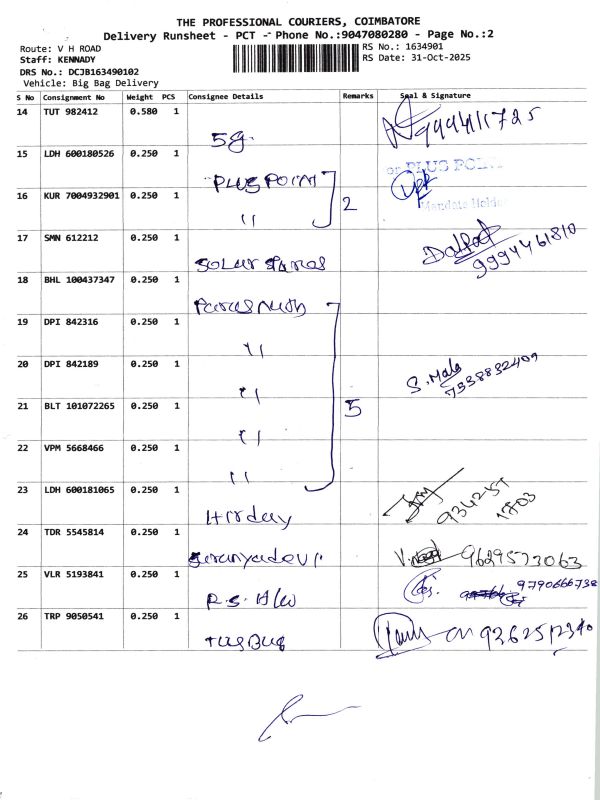 THE PROFESSIONAL COURIERS, COIMBATORE
Delivery Runsheet - PCT - Phone No.:9047080280 - Page No.:2
Route: V H ROAD
RS No.: 1634901
Staff: KENNADY
RS Date: 31-Oct-2025
DRS No.: DCJB163490102
Vehicle: Big Bag Delivery
S No Consignment No Weight PCS Consignee Details Remarks Seal & Signature
14 TUT 982412 0.580 1
5g
9994111725
15 LDH 600180526 0.250 1
PLUS POINT
PLUS POINT
16 KUR 7004932901 0.250 1
"
2
Mandate Holder
17 SMN 612212 0.250 1
SOLAR
9994461810
18 BHL 100437347 0.250 1
Parasnath
19 DPI 842316 0.250 1
"
20 DPI 842189 0.250 1
"
S. Mala
7538832409
21 BLT 101072265 0.250 1
"
5
22 VPM 5668466 0.250 1
"
23 LDH 600181065 0.250 1
Hirday
934251
1703
24 TDR 5545814 0.250 1
Saranyadevi
9629573063
25 VLR 5193841 0.250 1
R.S. H/W
9790666738
26 TRP 9050541 0.250 1